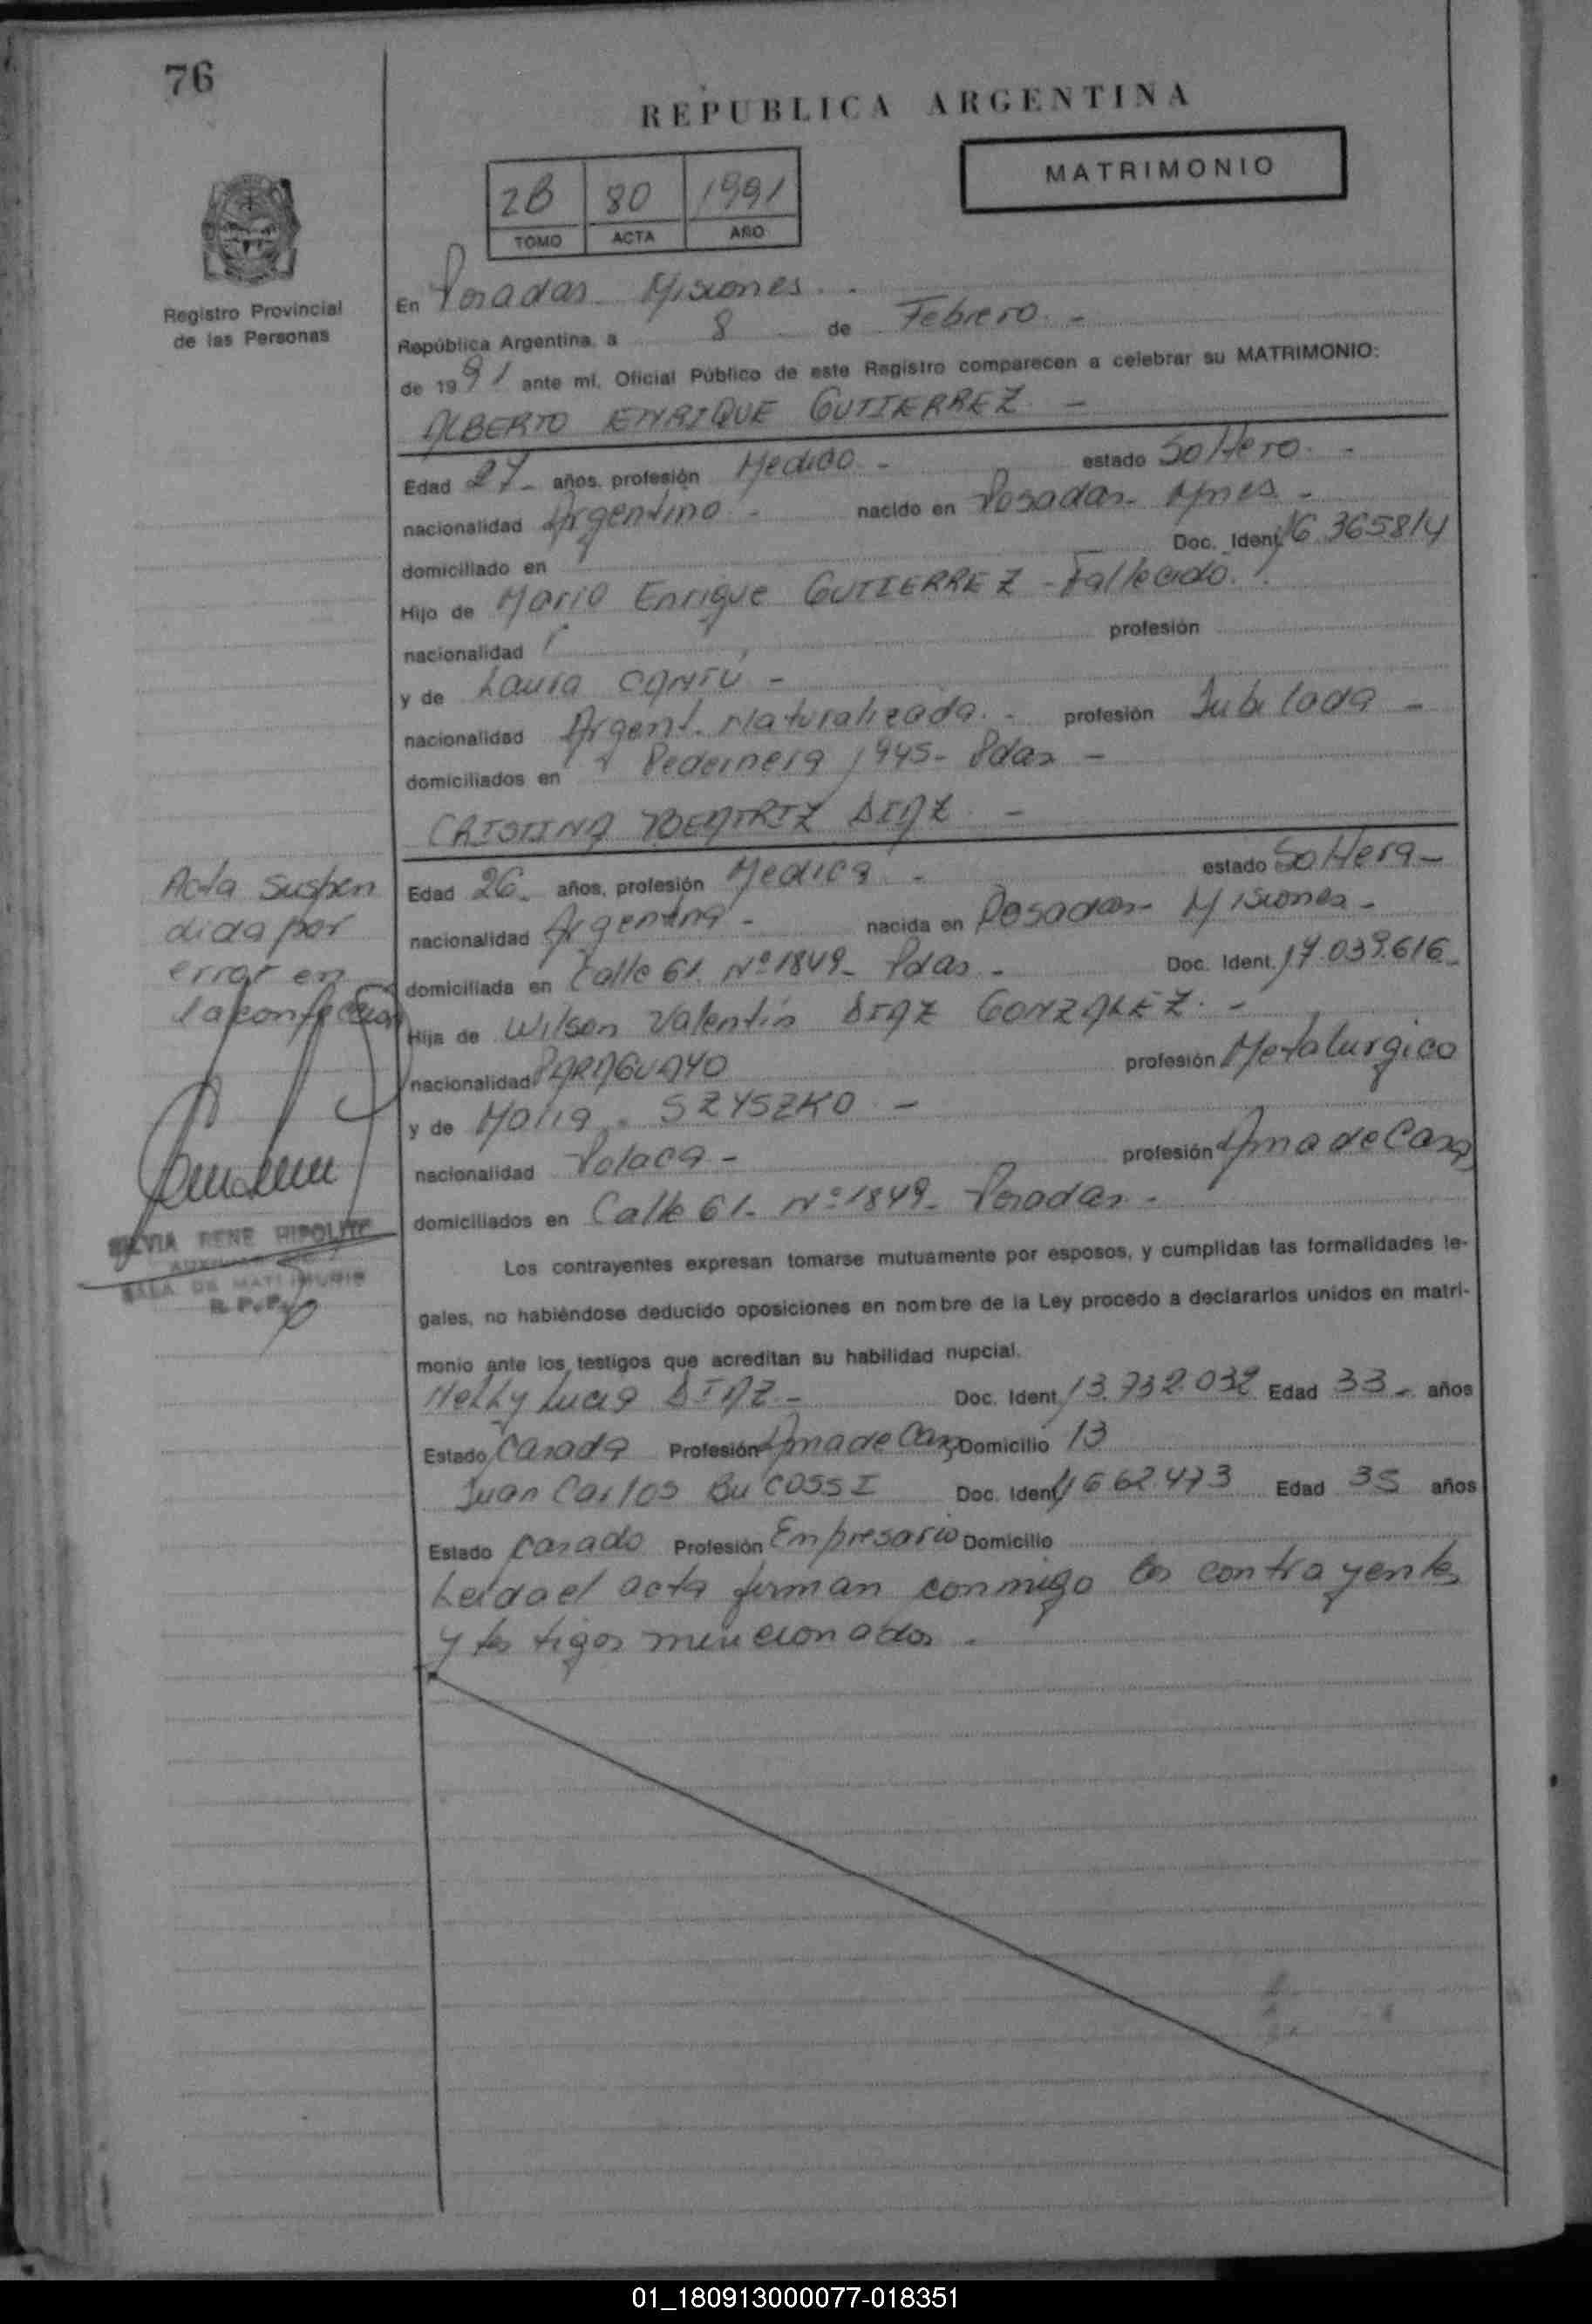 76
REPUBLICA ARGENTINA
MATRIMONIO
2B 80 1991
TOMO ACTA AÑO
Registro Provincial
de las Personas
En Posadas Misiones.
República Argentina, a 8 de Febrero. -
de 1991 ante mí, Oficial Público de este Registro comparecen a celebrar su MATRIMONIO:
ALBERTO ENRIQUE GUTIERREZ. -
Edad 27- años, profesión Medico - estado Soltero. -
nacionalidad Argentino - nacido en Posadas- Mnes -
domiciliado en Doc. Ident. 16.365814
Hijo de Mario Enrique GUTIERREZ - Fallecido.
nacionalidad profesión
y de Laura CANTÚ -
nacionalidad Argent. Naturalizada. - profesión Jubilada -
domiciliados en Pedernera 1945- Pdas -
CRISTINA BEATRIZ DIAZ. -
Edad 26- años, profesión Medica - estado Soltera-
nacionalidad Argentina - nacida en Posadas- Misiones -
domiciliada en Calle 61. Nº 1849- Pdas. - Doc. Ident. 17.039.616-
Hija de Wilson Valentín DIAZ GONZALEZ. -
nacionalidad PARAGUAYO profesión Metalurgico
y de Maria SZYSZKO -
nacionalidad Polaca - profesión Ama de Casa
domiciliados en Calle 61- Nº 1849- Posadas -
Acta Suspen
dida por
error en
la confeccion
SILVIA RENE HIPOLITE
AUXILIAR
SALA DE MATRIMONIO
R.P.P.
Los contrayentes expresan tomarse mutuamente por esposos, y cumplidas las formalidades le-
gales, no habiéndose deducido oposiciones en nombre de la Ley procedo a declararlos unidos en matri-
monio ante los testigos que acreditan su habilidad nupcial.
Nelly Lucia DIAZ - Doc. Ident. 13.732.032 Edad 33- años
Estado Casada Profesión Ama de Casa Domicilio 13
Juan Carlos BUCOSSI Doc. Ident. 11662.473 Edad 35 años
Estado Casado Profesión Empresario Domicilio
Leida el acta firman conmigo los contrayentes
y testigos mencionados.
01_180913000077-018351